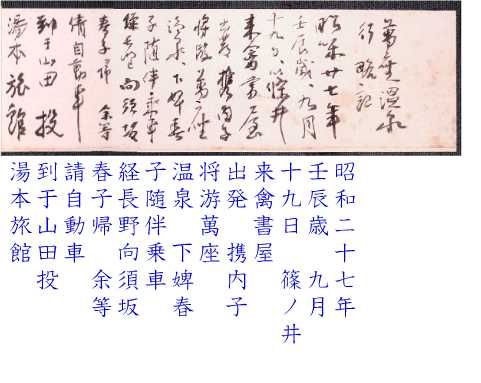 萬座温泉
行略記
昭和廿七年
壬辰歳九月
十九日 篠井
来禽書屋
出発 携内子
将游萬座
温泉 下婢春
子随伴乗車
経長野向須坂
春子帰 余等
倩自動車
到于山田 投
湯本旅館
昭和二十七年
壬辰歳 九月
十九日 篠ノ井
来禽書屋
出発 携内子
将游萬座
温泉 下婢春
子随伴乗車
経長野向須坂
春子帰 余等
請自動車
到于山田投
湯本旅館